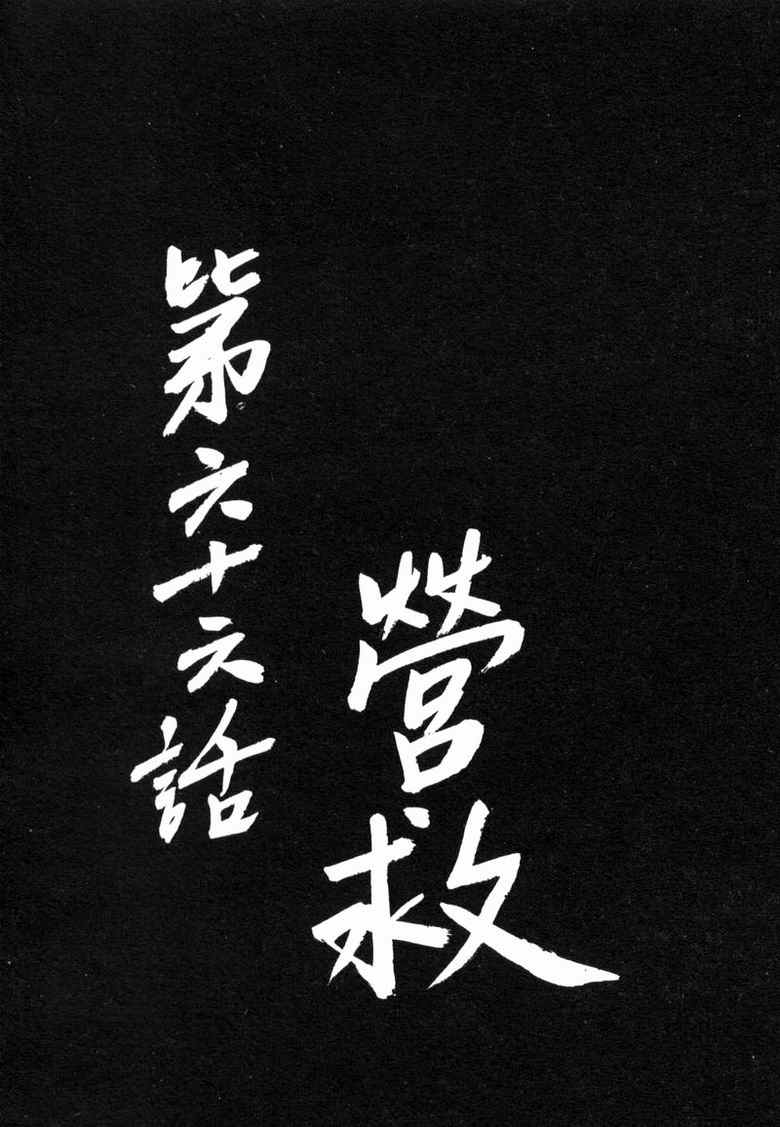 營救
第六十六話